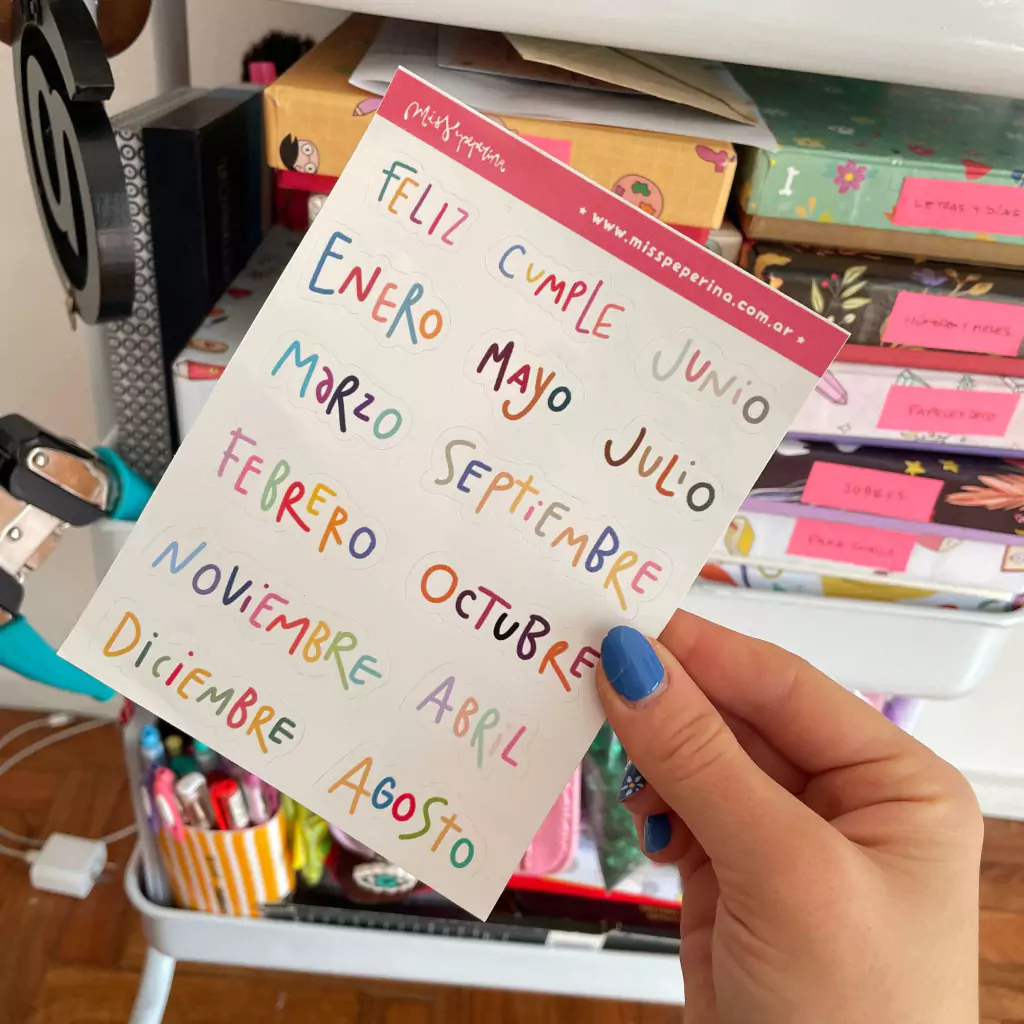 Miss Peperina
www.misspeperina.com.ar
FELIZ
CUMPLE
ENERO
JUNIO
MAYO
MaRZO
JULiO
SEPTiEMBRE
FEBRERO
OCTUBRE
NOViEMBRE
ABRiL
DiCiEMBRE
AGOSTO
LETRAS Y DÍAS
NÚMEROS Y MESES
SOBRES